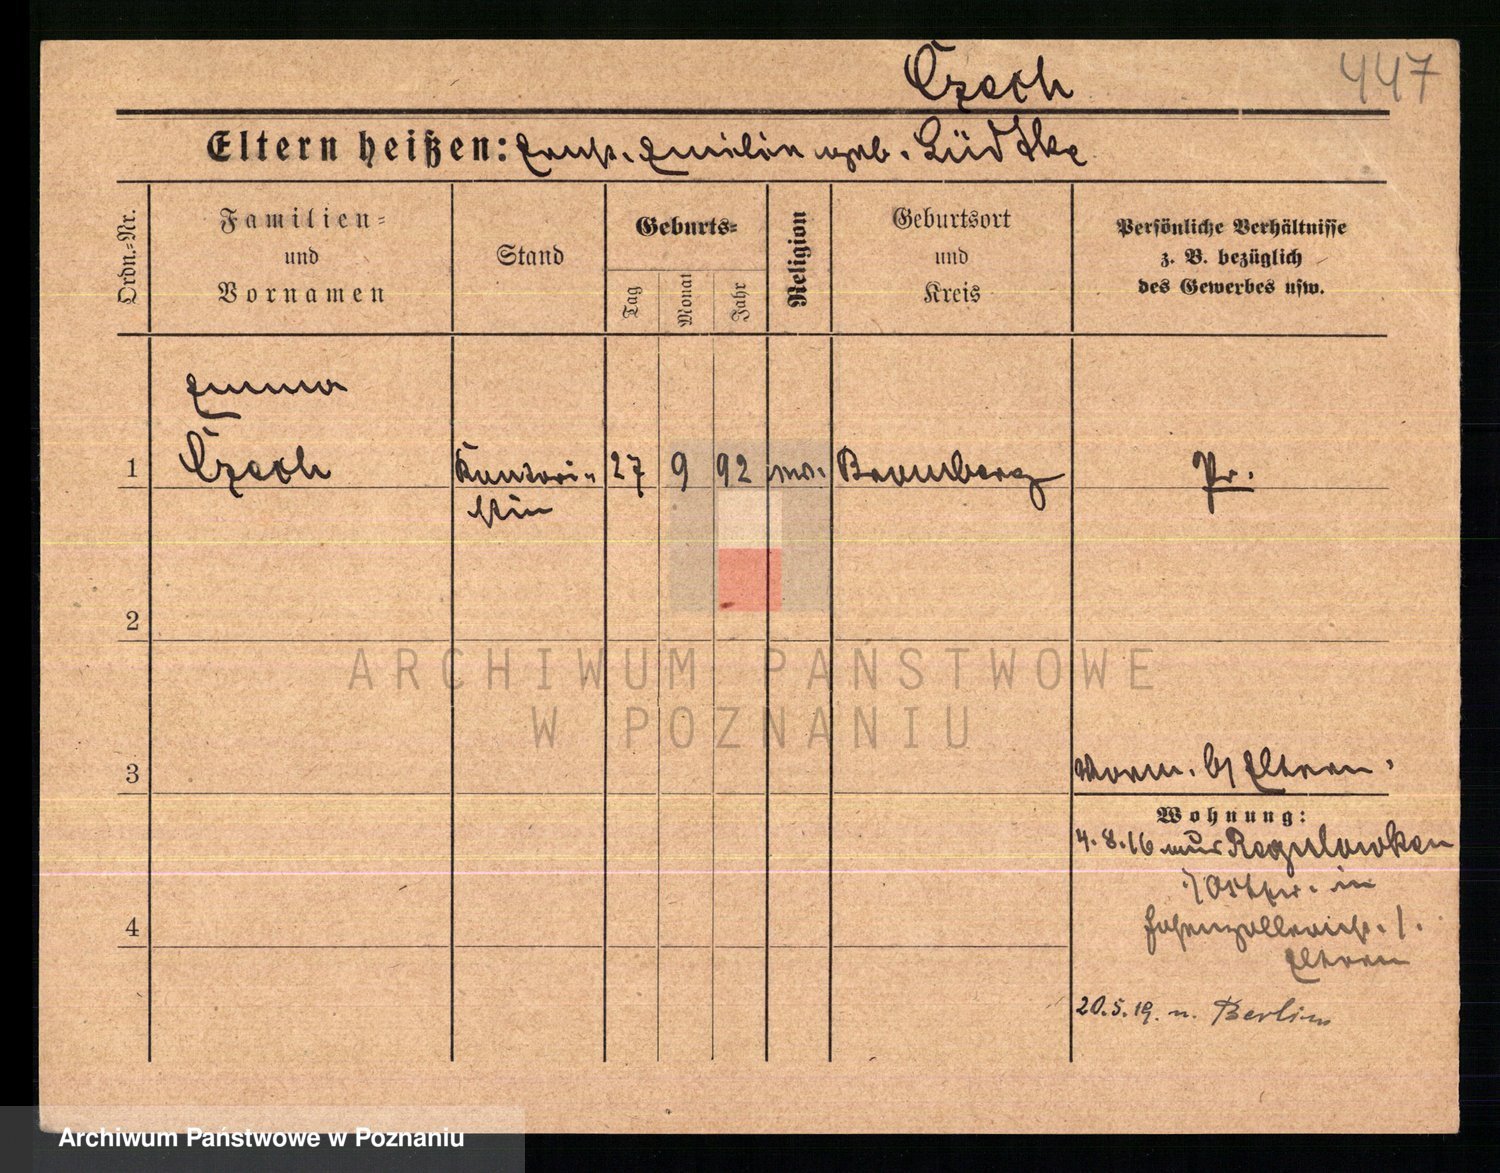 Czech
447
Eltern heißen: Ernst. Emilie geb. Lüdtke
Ordn.=Nr.
Familien=
und
Vornamen
Stand
Geburts=
Tag
Monat
Jahr
Religion
Geburtsort
und
Kreis
Persönliche Verhältnisse
z. B. bezüglich
des Gewerbes usw.
Emma
1 Czech Kontori= 27 9 92 Bromberg Pr.
stin
2
ARCHIWUM PAŃSTWOWE
W POZNANIU
3
Eltern.
Wohnung:
4.8.16
in
4
Eltern
20.5.19. n. Berlin
Archiwum Państwowe w Poznaniu